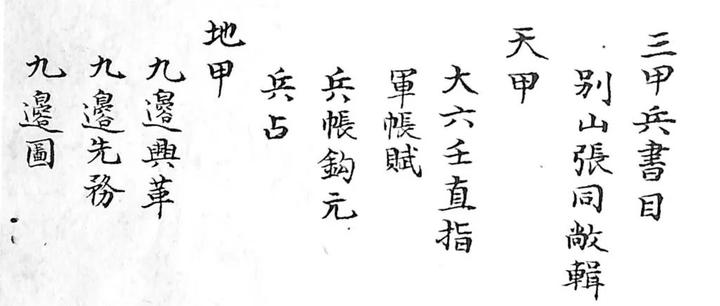 三甲兵書目
別山張同敞輯
天甲
大六壬直指
軍帳賦
兵帳鈎元
兵占
地甲
九邊興革
九邊先務
九邊圖